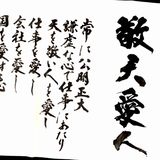 敬天愛人
常に公明正大
謙虚な心で仕事にあたり
天を敬い人を愛し
仕事を愛し
会社を愛し
国を愛する心